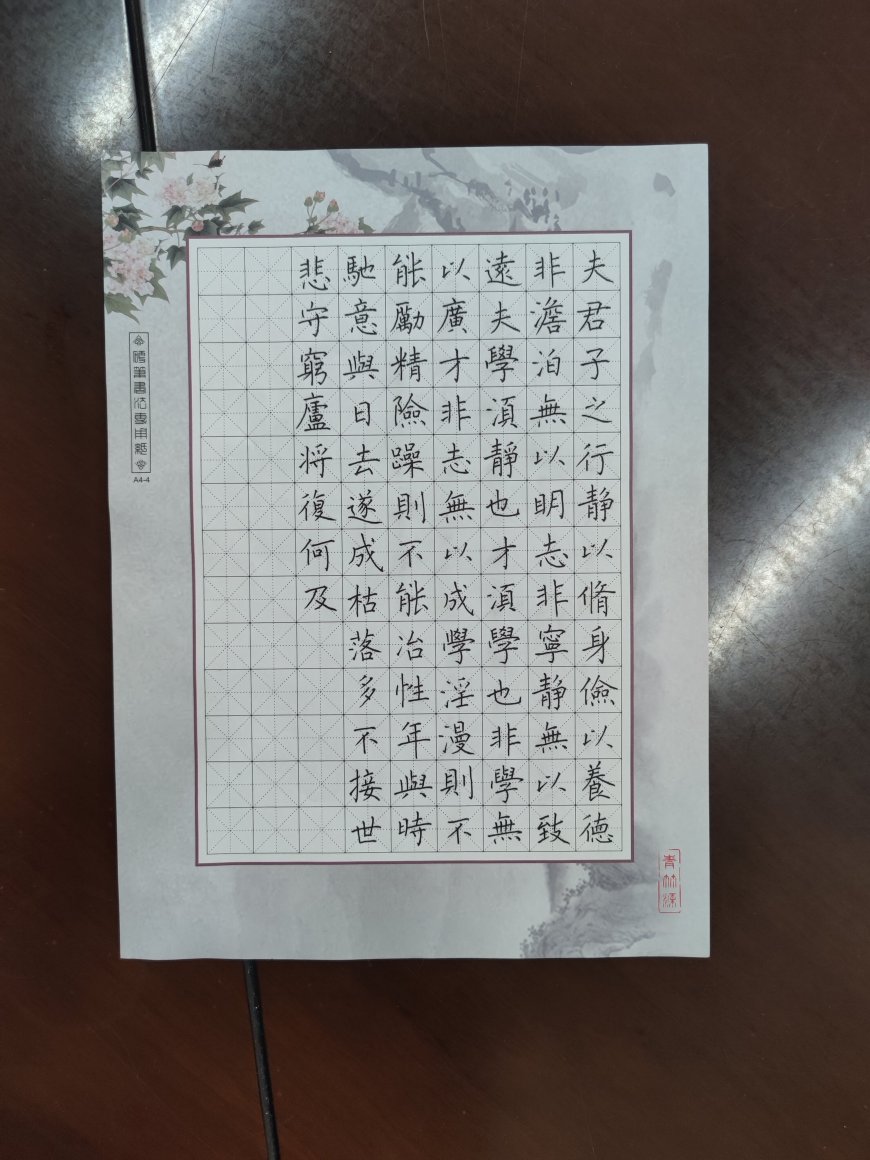 夫君子之行静以脩身儉以養德
非澹泊無以明志非寧静無以致
遠夫學須靜也才須學也非學無
以廣才非志無以成學淫漫則不
能勵精險躁則不能冶性年與時
馳意與日去遂成枯落多不接世
悲守窮廬将復何及
硬筆書法專用紙
A4-4
青竹源